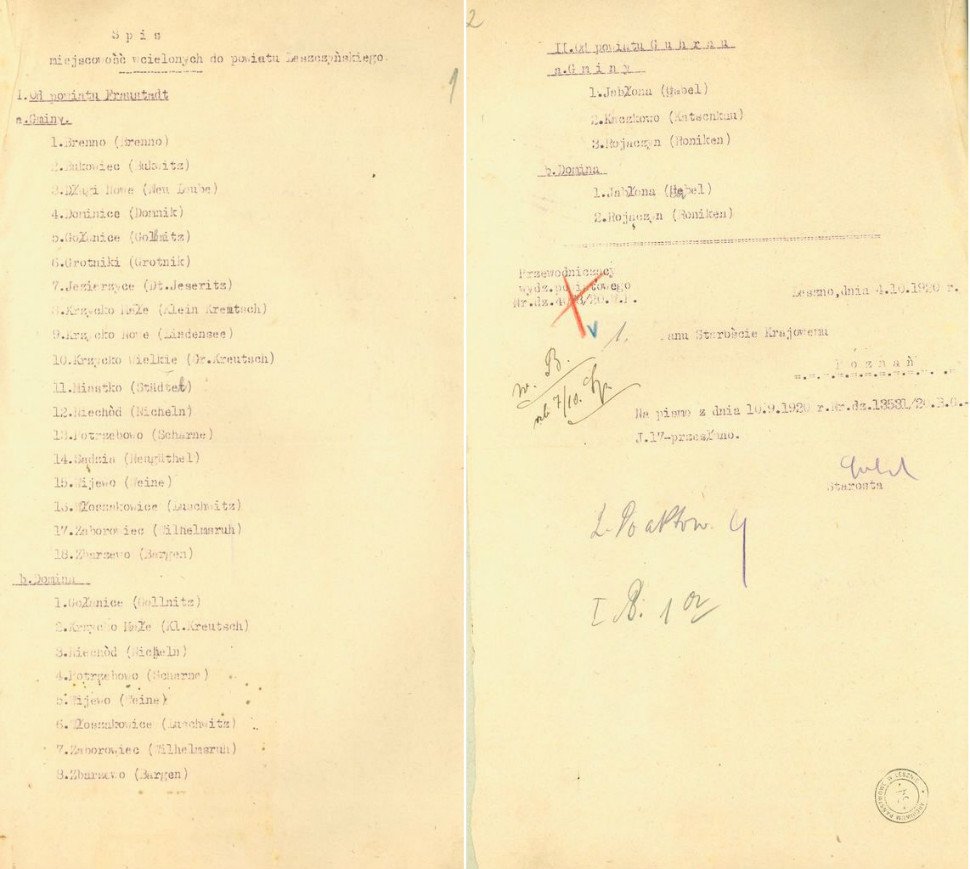 Spis
miejscowość wcielonych do powiatu Leszczyńskiego.
1
I.Od powiatu Fraustadt
a.Gminy.
1.Brenno (Brenno)
2.Bukowiec (Bukwitz)
3.Długi Nowe (Neu Laube)
4.Dominice (Domnik)
5.Gołanice (Gollnitz)
6.Grotniki (Grotnik)
7.Jezierzyce (Dt.Jeseritz)
8.Krzycko Małe (Klein Kreutsch)
9.Krzycko Nowe (Lindensee)
10.Krzycko Wielkie (Gr.Kreutsch)
11.Miastko (Städtel)
12.Niechód (Nicheln)
13.Potrzebowo (Scharne)
14.Sądzia (Neuguthel)
15.Wijewo (Weine)
16.Włoszakowice (Luschwitz)
17.Zaborowiec (Wilhelmsruh)
18.Zbarzewo (Bargen)
b.Domina
1.Gołanice (Gollnitz)
2.Krzycko Małe (Kl.Kreutsch)
3.Niechód (Nicheln)
4.Potrzebowo (Scharne)
5.Wijewo (Weine)
6.Włoszakowice (Luschwitz)
7.Zaborowiec (Wilhelmsruh)
8.Zbarzewo (Bargen)
2
II.Od powiatu Guhrau
a.Gminy
1.Jabłona (Gabel)
2.Kaczkowo (Katschkau)
3.Rojaczyn (Roniken)
b.Domina
1.Jabłona (Gabel)
2.Rojaczyn (Roniken)
Przewodniczący
wydz.powiatowego
Leszno,dnia 4.10.1920 r.
1. Panu Staroście Krajowemu
Poznań
Na pismo z dnia 10.9.1920 r.Nr.dz.13531/20.B.O.-
J.17-przesłano.
Starosta
7/10.
I B. 1
ARCHIWUM PAŃSTWOWE W LESZNIE